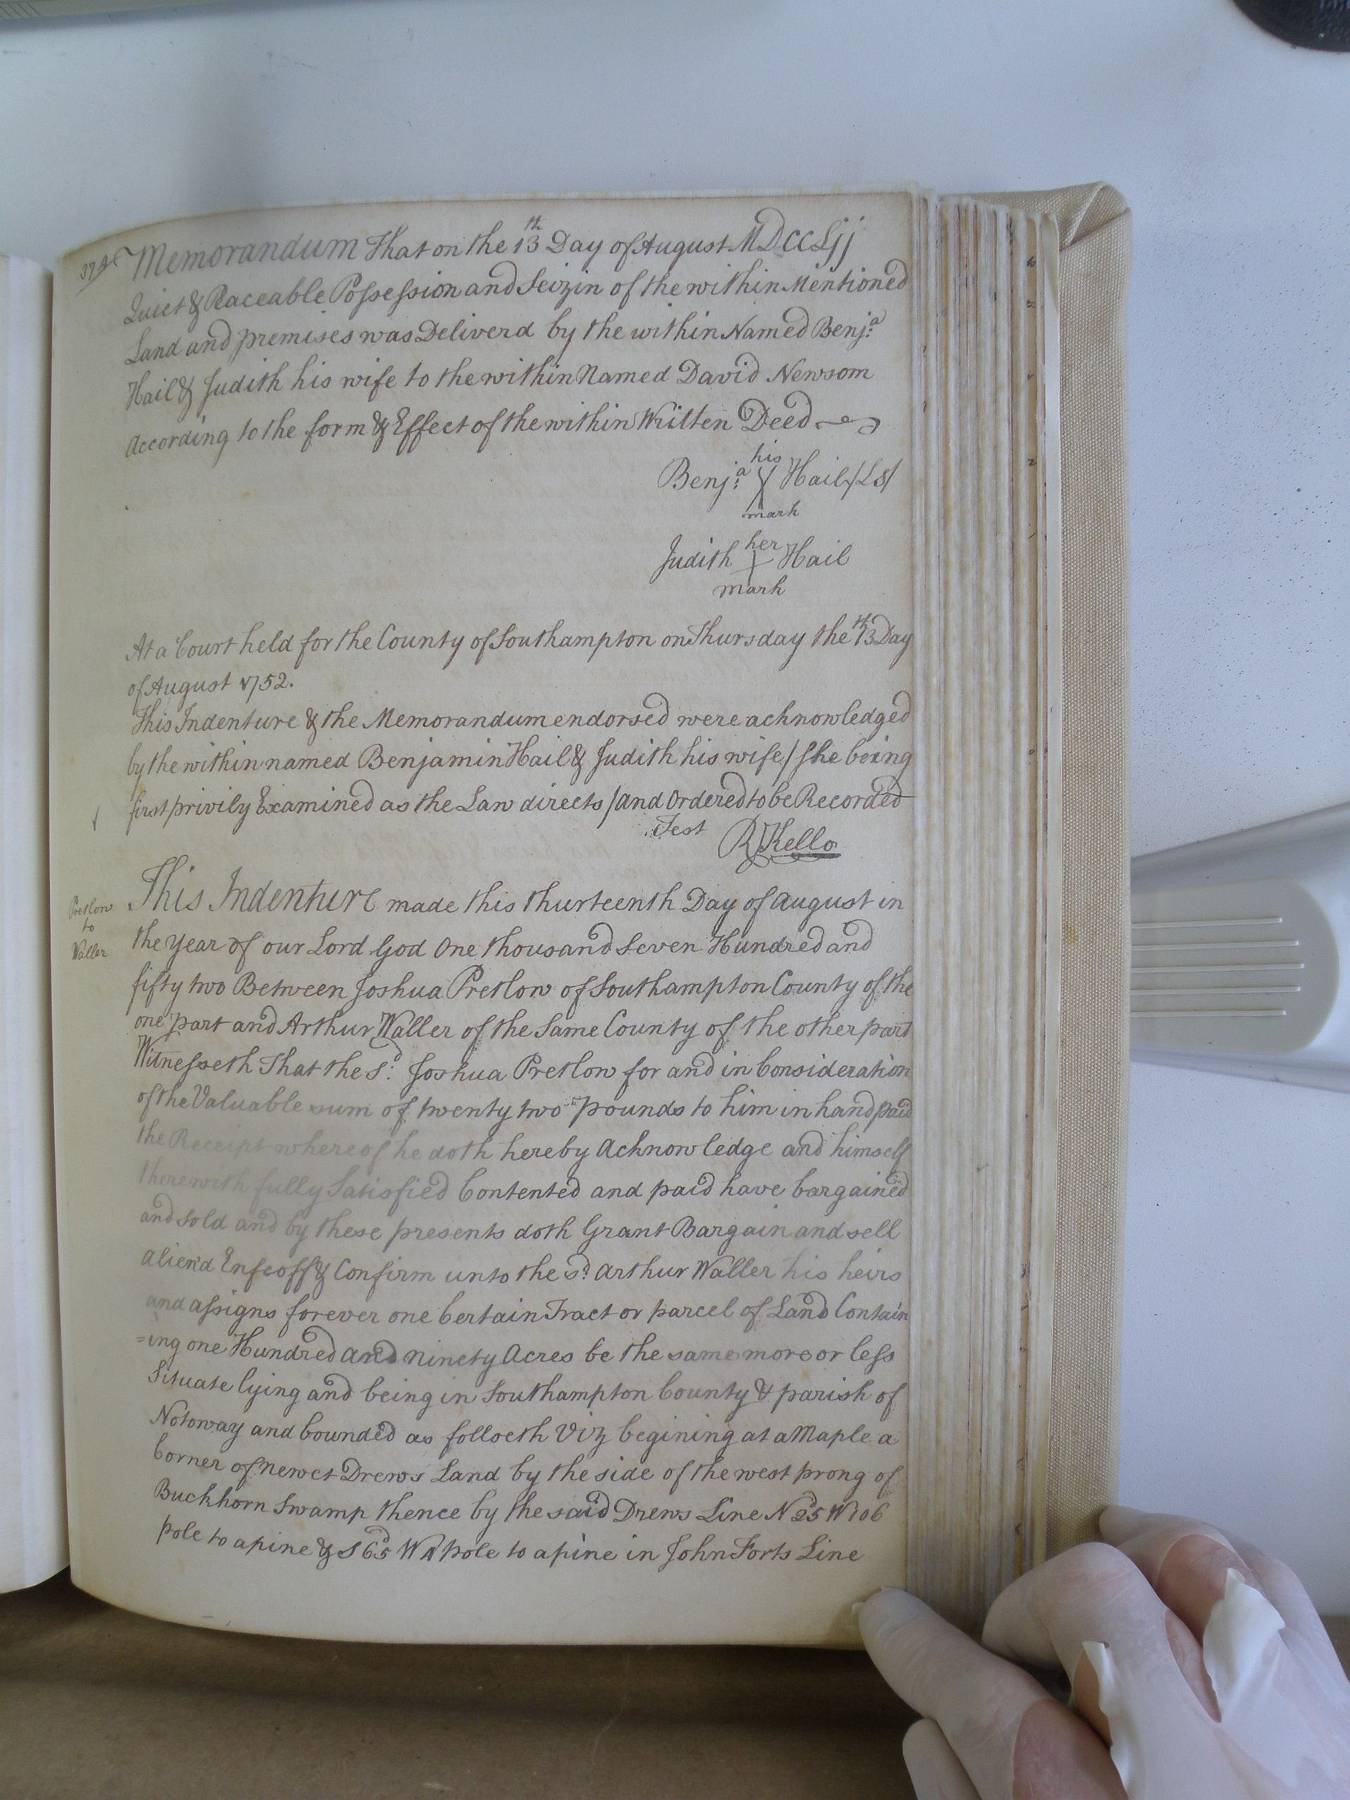 374
Memorandum That on the 13th Day of August MDCCLjj
Quiet & Peaceable Possession and Seizin of the within Mentioned
Land and premises was Deliverd by the within Named Benja:
Hail & Judith his wife to the within Named David Newsom
According to the form & Effect of the within Written Deed
his
Benja: Hail /LS/
mark
her
Judith Hail
mark
At a Court held for the County of Southampton on Thursday the 13th Day
of August 1752.
This Indenture & the Memorandum endorsed were acknowledged
by the within named Benjamin Hail & Judith his wife / she being
first privily Examined as the Law directs / and Ordered to be Recorded
Test R Kello
Pretlow
to
Waller
This Indenture made this thurteenth Day of August in
the year of our Lord God One thousand Seven Hundred and
fifty two Between Joshua Pretlow of Southampton County of the
one part and Arthur Waller of the Same County of the other part
Witnesseth That the sd: Joshua Pretlow for and in Consideration
of the Valuable sum of twenty two pounds to him in hand paid
the Receipt whereof he doth hereby Acknowledge and himself
therewith fully Satisfied Contented and paid have bargained
and sold and by these presents doth Grant Bargain and sell
alien'd Enfeoff & Confirm unto the sd: Arthur Waller his heirs
and assigns forever one Certain Tract or parcel of Land Contain
=ing one Hundred and ninety Acres be the same more or less
Situate lying and being in Southampton County & parish of
Notoway and bounded as folloeth Viz begining at a Maple a
Corner of newet Drews Land by the side of the west prong of
Buckhorn Swamp thence by the said Drews Line N 25d W 106
pole to a pine & S 65d W pole to a pine in John Forts Line